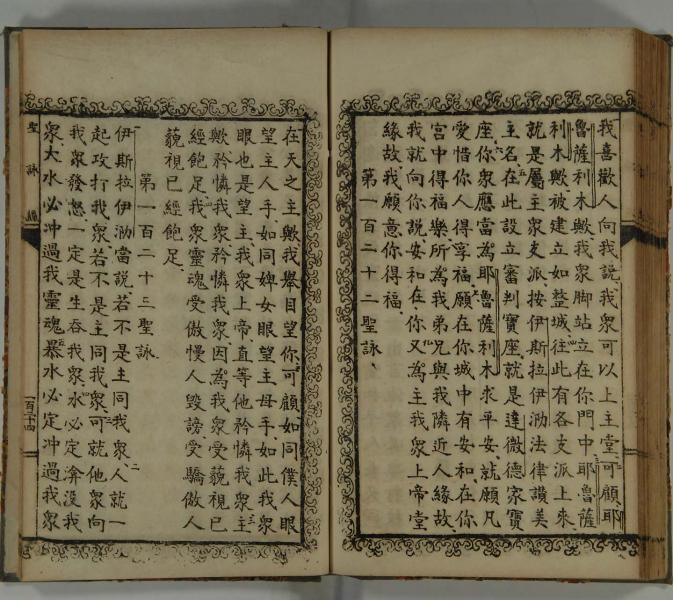 我喜歡人向我說我衆可以上主堂可顧耶
魯薩利木歟我衆脚站立在你門中耶魯薩
利木歟被建立如整城往此有各支派上來
就是屬主衆支派按伊斯拉伊泐法律讚美
主名在此設立審判寶座就是達微德家寶
座你衆應當為耶魯薩利木求平安就願凡
愛惜你人得享福願在你城中有安和在你
宮中得福樂所為我弟兄與我隣近人緣故
我就向你說安和在你又為主我衆上帝堂
緣故我願意你得福
第一百二十二聖詠
在天之主歟我舉目望你可顧如同僕人眼
望主人手如同婢女眼望主母手如此我衆
眼也是望主我衆上帝直等他矜憐我衆主
歟矜憐我衆矜憐我衆因為我衆受藐視已
經飽足我衆靈魂受傲慢人毀謗受驕傲人
藐視已經飽足
第一百二十三聖詠
伊斯拉伊泐當說若不是主同我衆人就一
起攻打我衆若不是主同我衆可就他衆向
我衆發怒一定是生吞我衆水必定渰沒我
衆大水必冲過我靈魂暴水必定冲過我衆
聖詠經
一百二十四